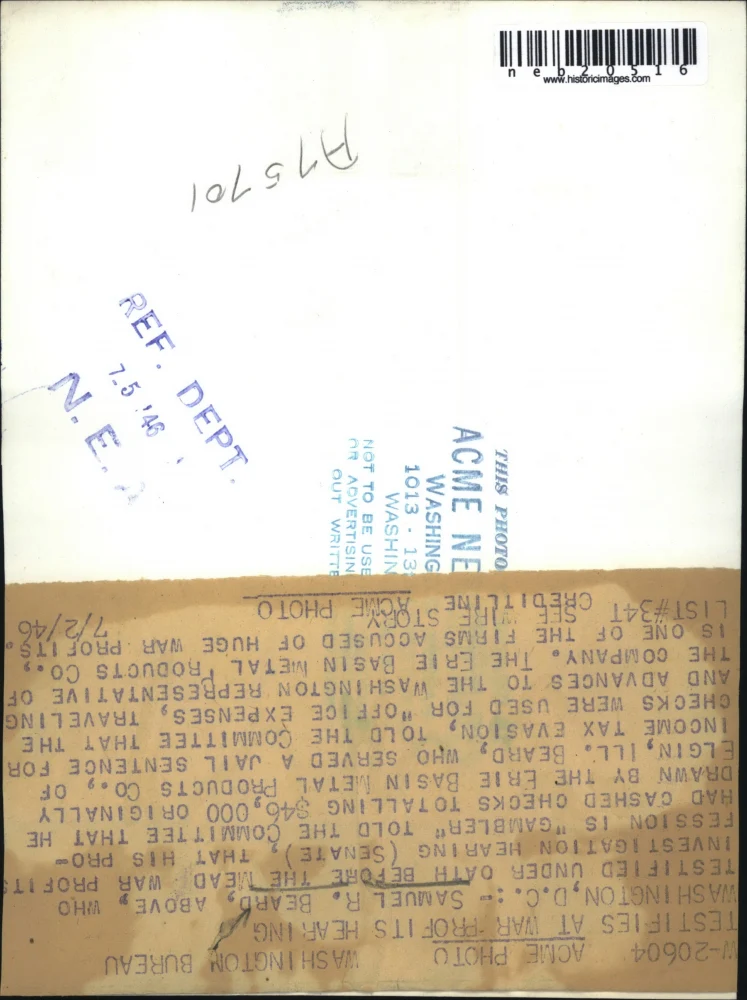 neb20516
www.historicimages.com
A75701
REF. DEPT.
7.5 '46
N. E. A
THIS PHOTO
ACME NE
WASHING
1013 - 13
WASHIN
NOT TO BE USE
OR ADVERTISIN
OUT WRITTE
W-20604 ACME PHOTO WASHINGTON BUREAU
TESTIFIES AT WAR PROFITS HEARING
WASHINGTON, D.C.:- SAMUEL R. BEARD, ABOVE, WHO
TESTIFIED UNDER OATH BEFORE THE MEAD WAR PROFITS
INVESTIGATION HEARING (SENATE), THAT HIS PRO-
FESSION IS "GAMBLER" TOLD THE COMMITTEE THAT HE
HAD CASHED CHECKS TOTALLING $46,000 ORIGINALLY
DRAWN BY THE ERIE BASIN METAL PRODUCTS CO., OF
ELGIN, ILL. BEARD, WHO SERVED A JAIL SENTENCE FOR
INCOME TAX EVASION, TOLD THE COMMITTEE THAT THE
CHECKS WERE USED FOR "OFFICE EXPENSES, TRAVELING
AND ADVANCES TO THE WASHINGTON REPRESENTATIVE OF
THE COMPANY. THE ERIE BASIN METAL PRODUCTS CO.,
IS ONE OF THE FIRMS ACCUSED OF HUGE WAR PROFITS.
SEE WIRE STORY 7/2/46
LIST#34T CREDITLINE ACME PHOTO